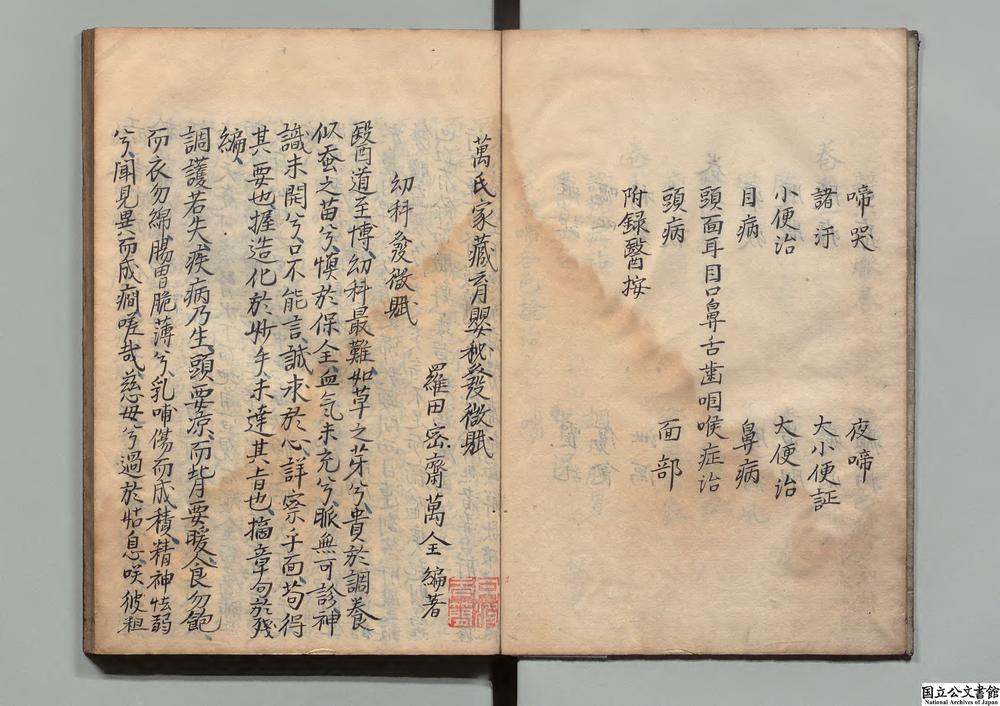 啼哭 夜啼
諸汗 大小便証
小便治 大便治
目病 鼻病
頭面耳目口鼻舌歯咽喉症治
頭病 面部
附録醫按
萬氏家藏育嬰秘發微賦
羅田密齋萬全編著
幼科發微賦
醫道至博、幼科最難、如草之芽兮、貴於調養
似蚕之苗兮、慎於保全、血気未充兮、脈無可診、神
識未開兮、口不能言、誠求於心、詳察乎面、苟得
其要也、握造化於妙手、未達其旨也、摘章句於殘
編、
調護若失、疾病乃生、頭要凉、而背要暖、食勿飽
而衣勿綿、腸胃脆薄兮、乳哺傷而成積、精神怯弱
兮、聞見異而成癇、嗟哉、慈母兮、過於姑息、咲彼粗
国立公文書館
National Archives of Japan